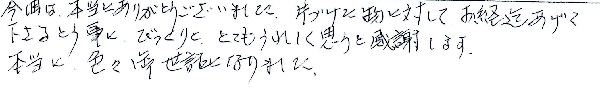 今回は、本当にありがとうございました。片づけた物に対して お経迄あげて
下さるとう事に、びっくりと、とてもうれしく思うと感謝します。
本当に 色々御世話になりました。